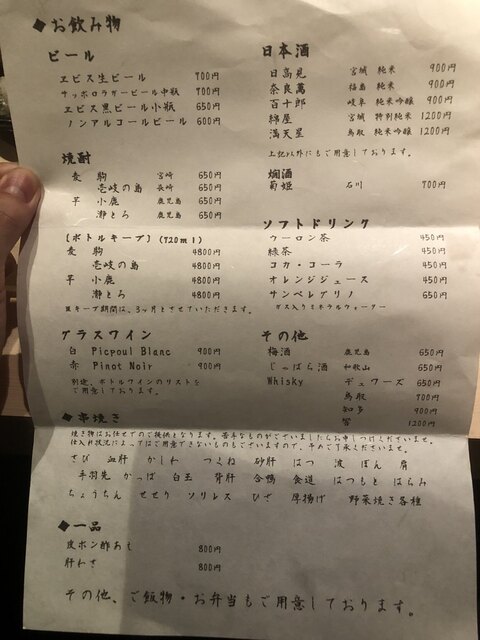 ◆お飲み物
ビール
ヱビス生ビール 700円
サッポロラガービール中瓶 700円
ヱビス黒ビール小瓶 650円
ノンアルコールビール 600円
焼酎
麦 駒 宮崎 650円
壱岐の島 長崎 650円
芋 小鹿 鹿児島 650円
瀞とろ 鹿児島 650円
(ボトルキープ) (720ml)
麦 駒 4800円
壱岐の島 4800円
芋 小鹿 4800円
瀞とろ 4800円
※キープ期間は、3ヶ月とさせていただきます。
グラスワイン
白 Picpoul Blanc 900円
赤 Pinot Noir 900円
別途、ボトルワインのリストを
ご用意しております。
日本酒
日高見 宮城 純米 900円
奈良萬 福島 純米 900円
百十郎 岐阜 純米吟醸 900円
綿屋 宮城 特別純米 1200円
満天星 鳥取 純米吟醸 1200円
上記以外にもご用意しております。
燗酒
菊姫 石川 700円
ソフトドリンク
ウーロン茶 450円
緑茶 450円
コカ・コーラ 450円
オレンジジュース 450円
サンペレグリノ 650円
ガス入りミネラルウォーター
その他
梅酒 鹿児島 650円
じゃばら酒 和歌山 650円
Whisky デュワーズ 650円
鳥取 700円
知多 900円
響 1200円
◆串焼き
焼き物はお任せでのご提供となります。苦手なものがございましたらお申しつけくださいませ。
仕入れ状況によってはご用意できないものもございますので、予めご了承くださいませ。
さび 血肝 かしわ つくね 砂肝 はつ 波 ぼん 肩
手羽先 かっぱ 白玉 背肝 合鴨 食道 はつもと はらみ
ちょうちん せせり ソリレス ひざ 厚揚げ 野菜焼き各種
◆一品
皮ポン酢あえ 800円
肝わさ 800円
その他、ご飯物・お弁当もご用意しております。